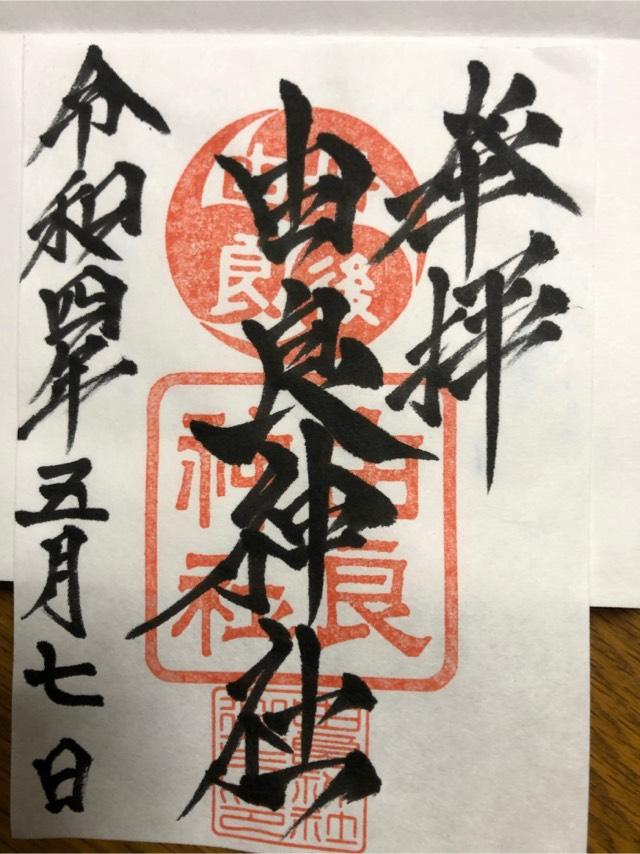 奉拝
由良神社
令和四年五月七日
丹後
由良
由良
神社